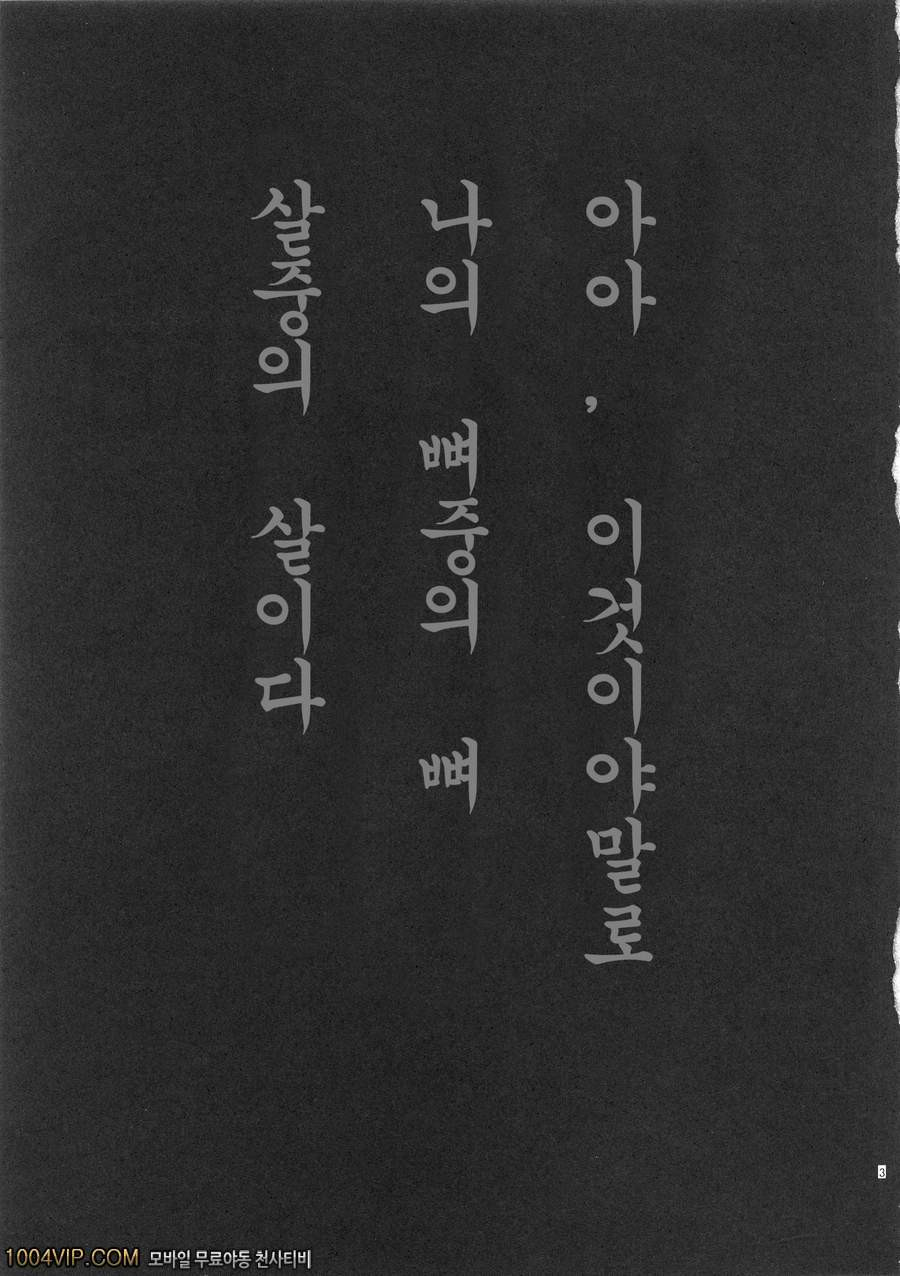 아아, 이것이야말로
나의 뼈중의 뼈
살중의 살이다
3
1004VIP.COM 모바일 무료야동 천사티비